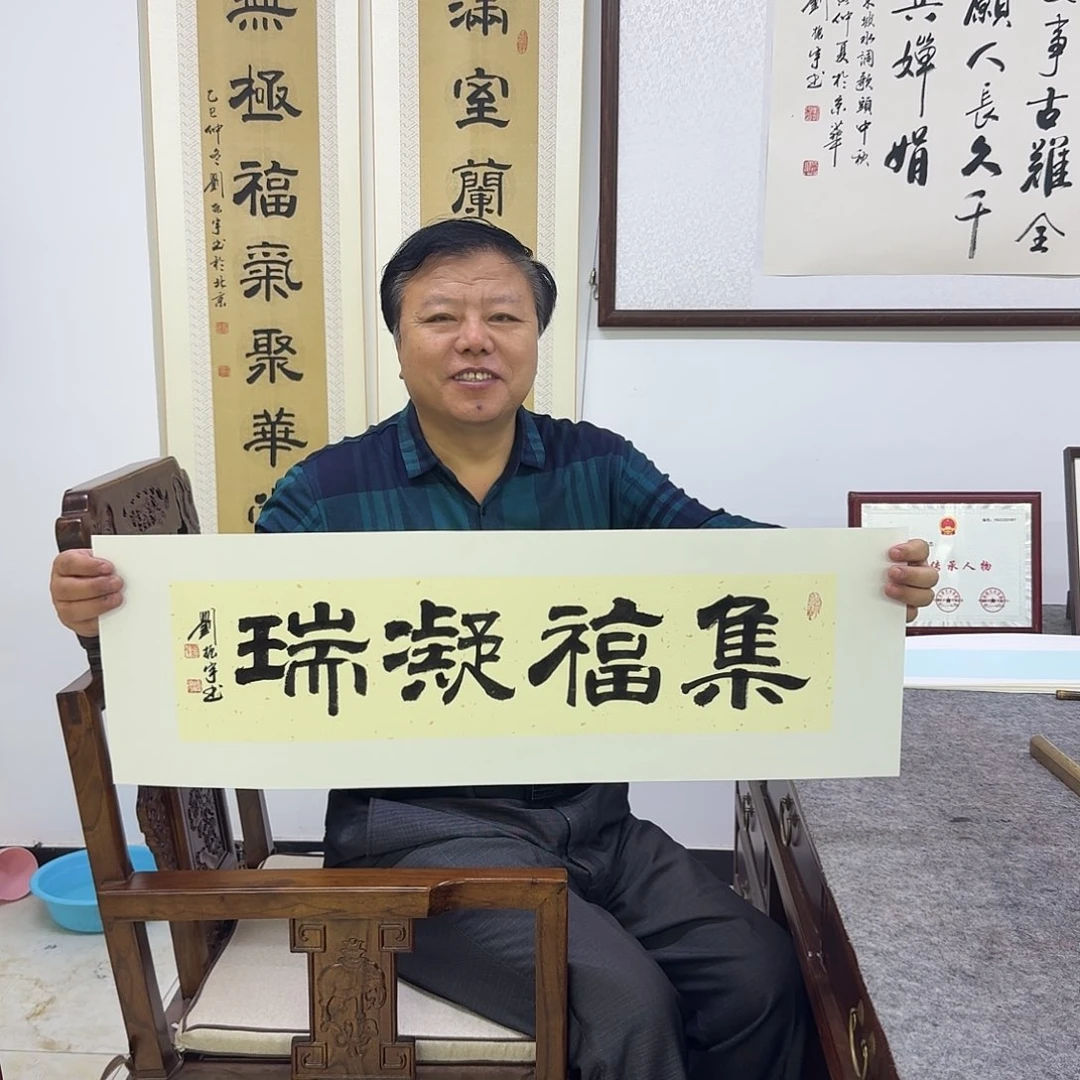 集福凝瑞
劉振宇书
滿室蘭
無極福氣聚華
乙巳仲冬劉振宇书於北京
事古難全
願人長久千
共嬋娟
坡水調歌頭中秋
仲夏於京華
劉振宇书
传承人物